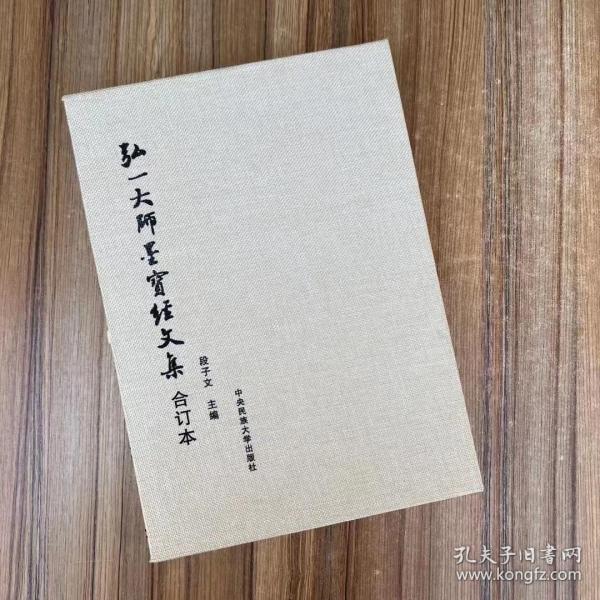 弘一大师墨宝经文集 合订本
段子文 主编
中央民族大学出版社
孔夫子旧書网
www.kongfz.com